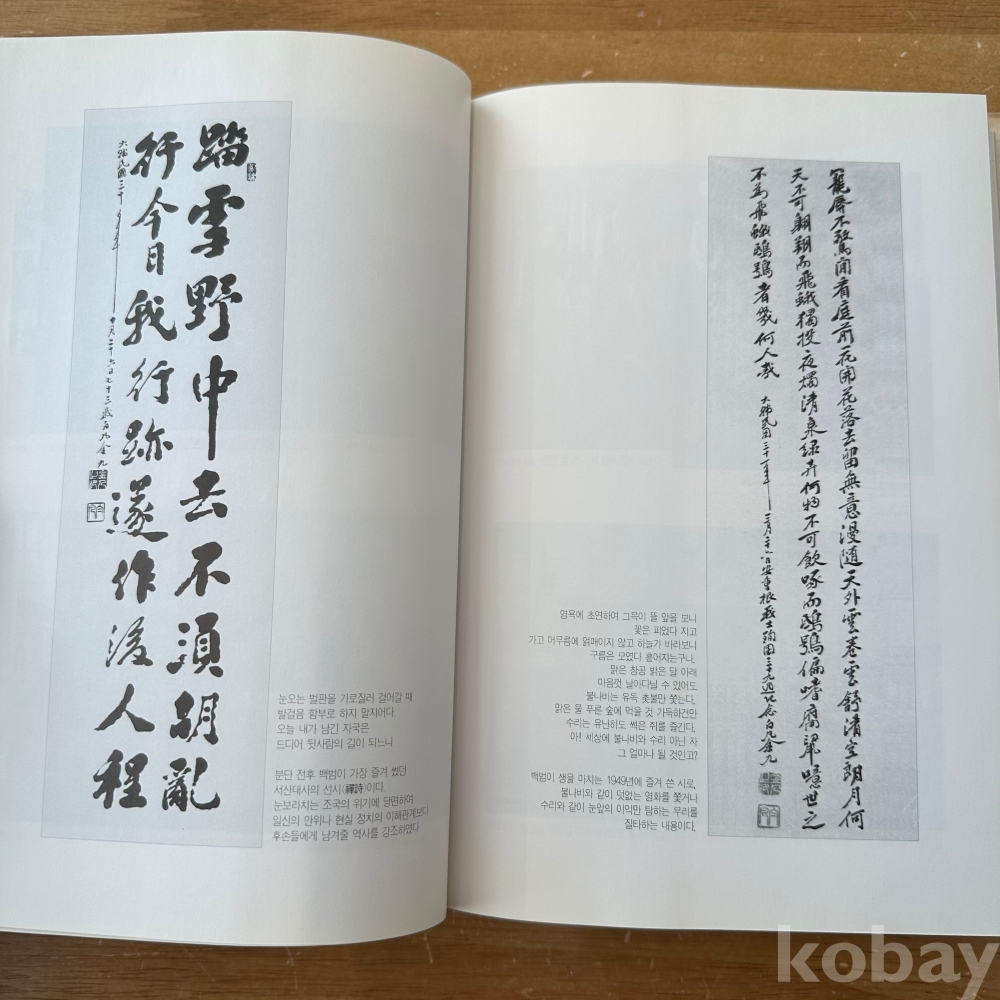 踏雪野中去不須胡亂
行今日我行跡遂作後人程
大韓民國三十年 十月二十六日七十三歲白凡金九
눈오는 벌판을 가로질러 걸어갈 때
발걸음 함부로 하지 말지어다.
오늘 내가 남긴 자국은
드디어 뒷사람의 길이 되느니
분단 전후 백범이 가장 즐겨 썼던
서산대사의 선시(禪詩)이다.
눈보라치는 조국의 위기에 당면하여
일신의 안위나 현실 정치의 이해관계보다
후손들에게 남겨줄 역사를 강조하였다
寵辱不驚閒看庭前花開花落去留無意漫隨天外雲卷雲舒清空朗月何
天不可翶翔而飛蛾獨投夜燭清泉綠卉何物不可飲啄而鴟鴞偏嗜腐鼠噫世之
不為飛蛾鴟鴞者幾何人哉 大韓民國三十一年 三月二十六日安重根義士殉國三十九週紀念白凡金九
영욕에 초연하여 그윽이 뜰 앞을 보니
꽃은 피었다 지고
가고 머무름에 얽매이지 않고 하늘가 바라보니
구름은 모였다 흩어지는구나.
맑은 창공 밝은 달 아래
마음껏 날아다닐 수 있어도
불나비는 유독 촛불만 쫓는다.
맑은 물 푸른 숲에 먹을 것 가득하건만
수리는 유난히도 썩은 쥐를 즐긴다.
아! 세상에 불나비와 수리 아닌 자
그 얼마나 될 것인고?
백범이 생을 마치는 1949년에 즐겨 쓴 시로,
불나비와 같이 덧없는 영화를 쫓거나
수리와 같이 눈앞의 이익만 탐하는 무리를
질타하는 내용이다.
kobay